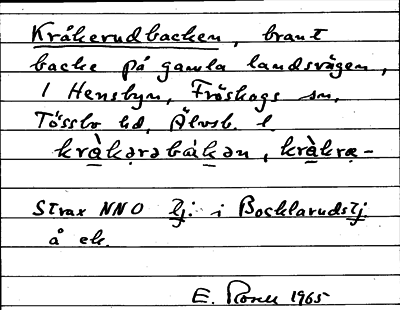 Kråkerudbacken, brant
backe på gamla landsvägen,
i Hensbyn, Fröskogs sn,
Tössbo hd, Älvsb. l.
kràkərəbákən, kràkræ-
Strax NNO lj: i Bocklarudstj
å ek.
E. Rosell 1965